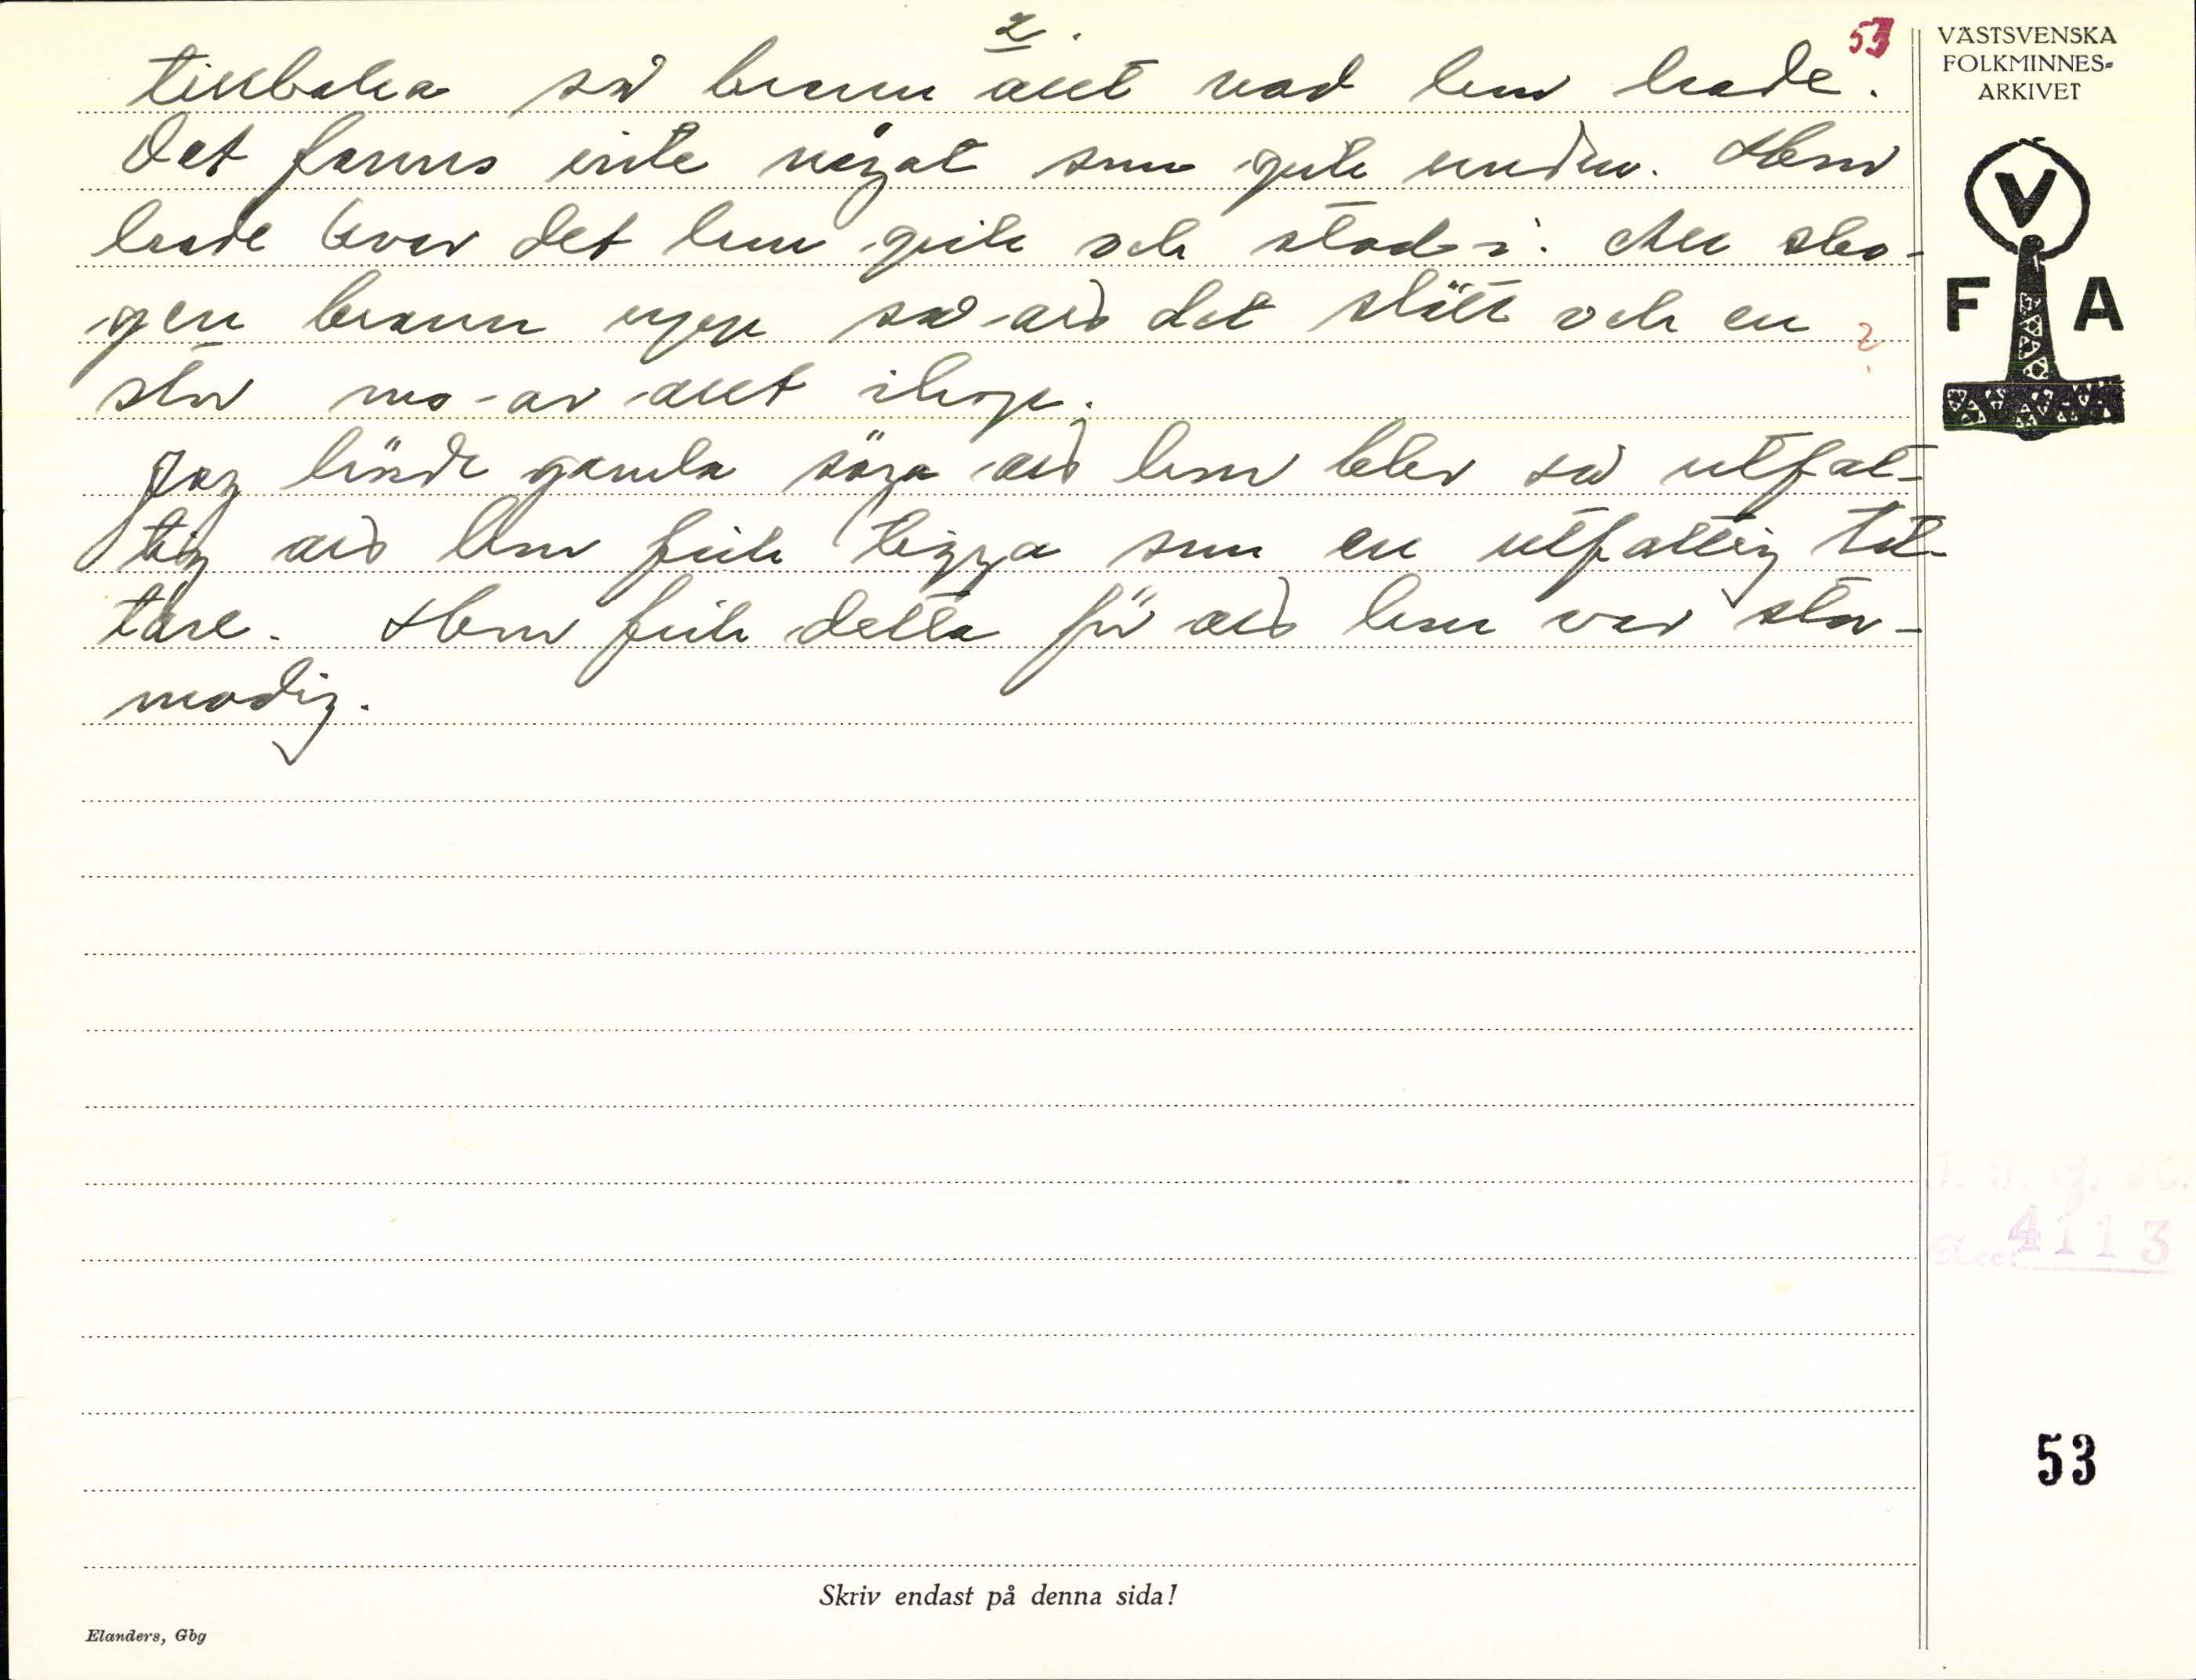 2.
53
tillbaka så brann allt vad hon hade.
Det fanns inte något som gick undan. Hon
hade kvar det hon gick och stod i. All sko-
gen brann upp så att det slätt och en
stor mo av allt ihop.
?
Jag hörde gamla säga att hon blev så utfat-
tig att hon fick tigga som en utfattig tat-
tare. Hon fick detta för att hon var stor-
modig.
VÄSTSVENSKA
FOLKMINNES-
ARKIVET
V
F A
Acc. 4113
53
Skriv endast på denna sida!
Elanders, Gbg